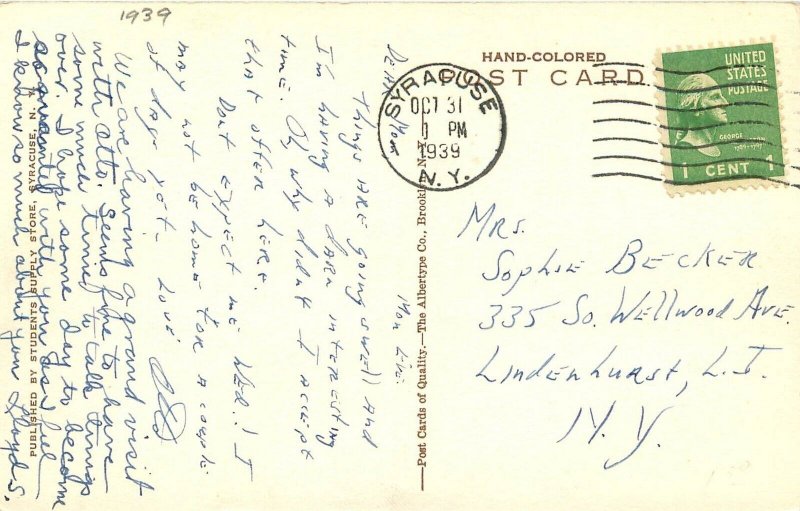 1939
HAND-COLORED
POST CARD
SYRACUSE
OCT 31
1 PM
1939
N.Y.
UNITED
STATES
POSTAGE
GEORGE
1 CENT 1
Mrs.
Sophie Becker
335 So. Wellwood Ave.
Lindenhurst, L.I.
N.Y.
Mon Eve.
Dear Mom
Things are going swell and
I'm having a darn interesting
time. Oh why didn't I accept
that offer here.
Dont expect me Wed.! I
may not be home for a couple
of days yet. Love
We are having a grand visit
with Otto. Seems fine to have
some much time to talk things
over. I hope some day to become
acquainted with you as I feel
I know so much about you Lloyd S.
PUBLISHED BY STUDENTS SUPPLY STORE, SYRACUSE, N. Y.
—Post Cards of Quality.—The Albertype Co., Brooklyn, N.Y.